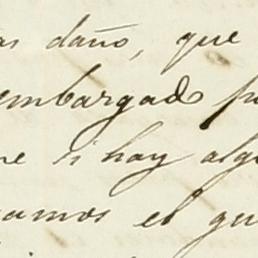 as daño, que
embargado po
ne si hay algu
gamos el gu